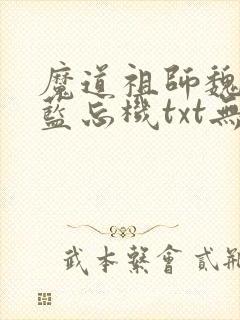 魔道祖師魏
藍忘機txt無
武本繫會貳瓶